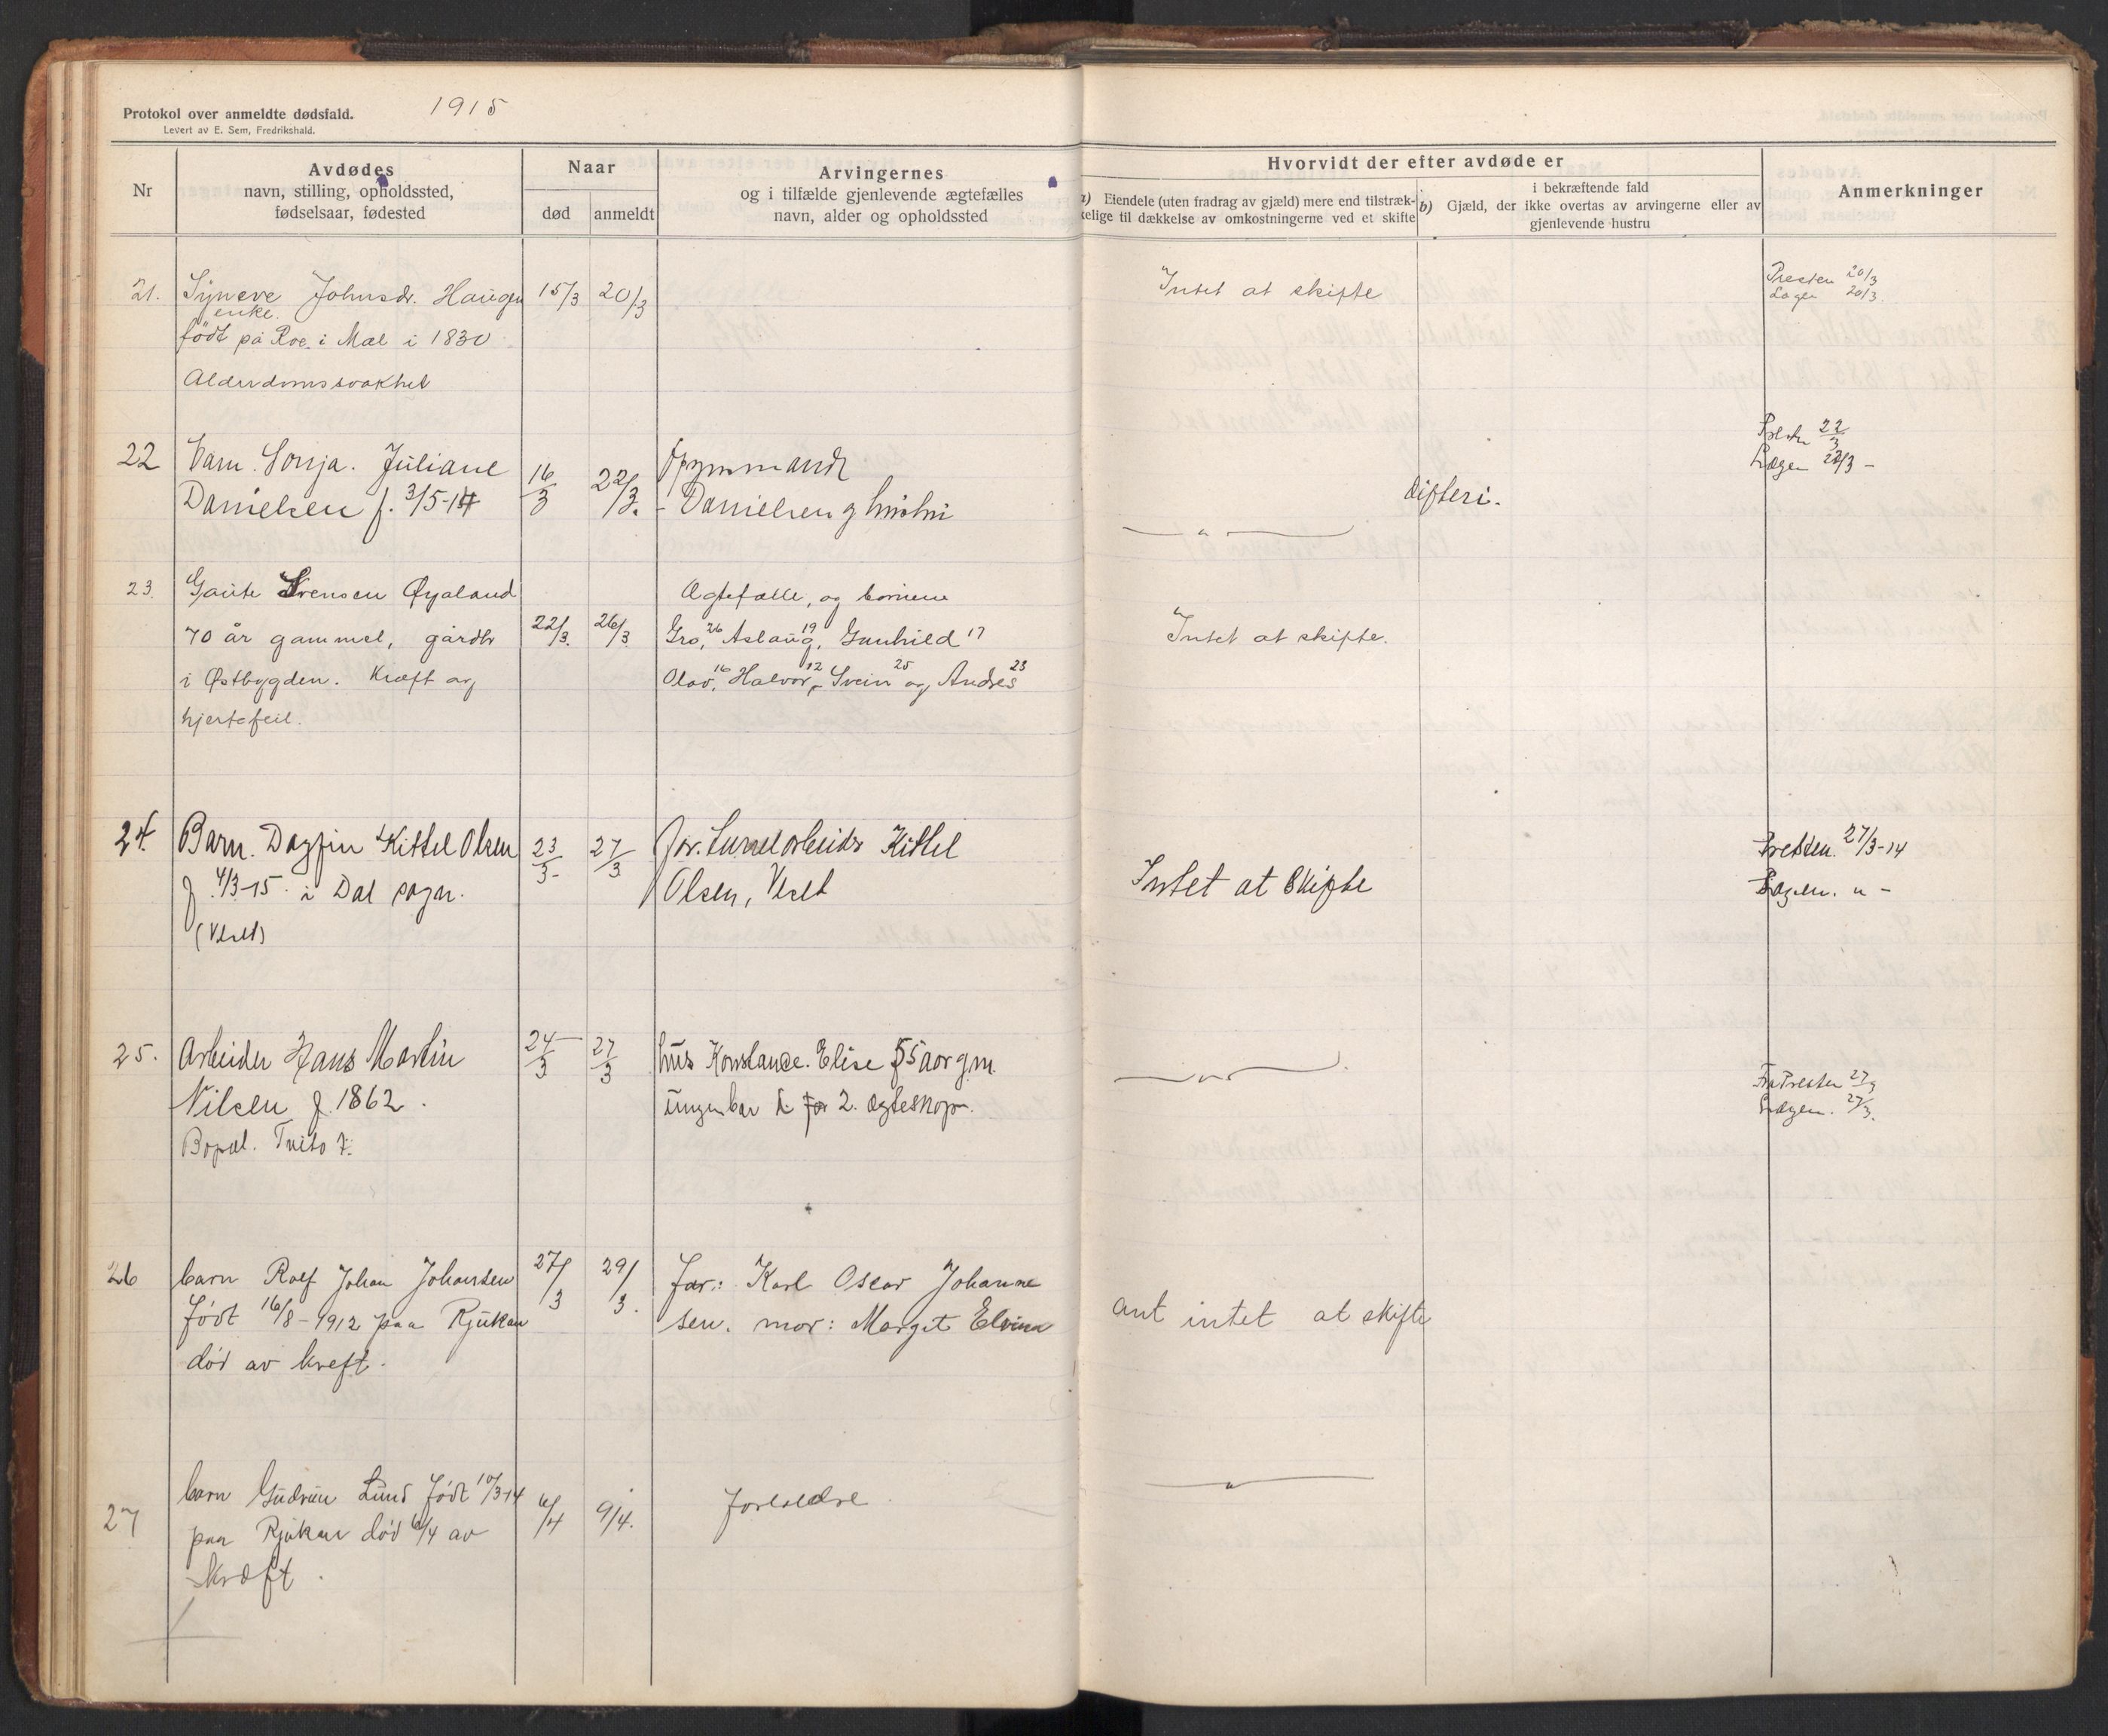 Protokol over anmeldte dødsfald.
Levert av E. Sem, Fredrikshald.
1915
Nr
Avdødes
navn, stilling, opholdssted,
fødselsaar, fødested
Naar
død
anmeldt
Arvingernes
og i tilfælde gjenlevende ægtefælles
navn, alder og opholdssted
Hvorvidt der efter avdøde er
a) Eiendele (uten fradrag av gjæld) mere end tilstræk-
kelige til dækkelse av omkostningerne ved et skifte
i bekræftende fald
b) Gjæld, der ikke overtas av arvingerne eller av
gjenlevende hustru
Anmerkninger
21. Syneve Johnsdr. Haugen 15/3 20/3 Intet at skifte Presten 20/3
enke. Lægen 20/3.
født på Roe i Mæl i 1830
Alderdomssvakhet
22 Barn. Sonja. Juliane 16/3 22/3. 22/3
Danielsen f. 3/5-14 - Danielsen og hustru — " — difteri. Lægen 22/3 -
23. Gaute Svensen Øyaland Ægtefælle, og børnene
70 år gammel, gårdbr 22/3. 26/3 Gro, 26 Aslaug, 19 Gunhild 17 Intet at skifte.
i Østbygden. Kræft og Olav, 16 Halvor, 12 Svein 25 og Andres 23
hjertefeil.
24. Barn. Dagfin Kittel Olsen 23/3- 27/3 Far. Kittel Presten. 27/3-14
f. 4/3-15. i Dal sogn. Olsen, Intet at skifte Lægen. " -
25. Arbeider Hans Martin 24/3 27/3 hus Konstance. Elise 55 aar gm. — " —. Fra Presten 27/3
Nilsen f. 1862. ungen bar i for 2. ægteskap. Lægen. 27/3.
Bopæl. Tveito 7.
26 barn Rolf Johan Johansen 27/3 29/3. far: Karl Oscar Johanne
født 16/8-1912 paa Rjukan sen. mor: Margit Elvina ant intet at skifte
død av kreft.
27 barn Gudrun Lund født 10/3-14 6/4 9/4. foreldre — " —
paa Rjukan død 6/4 av
kræft.